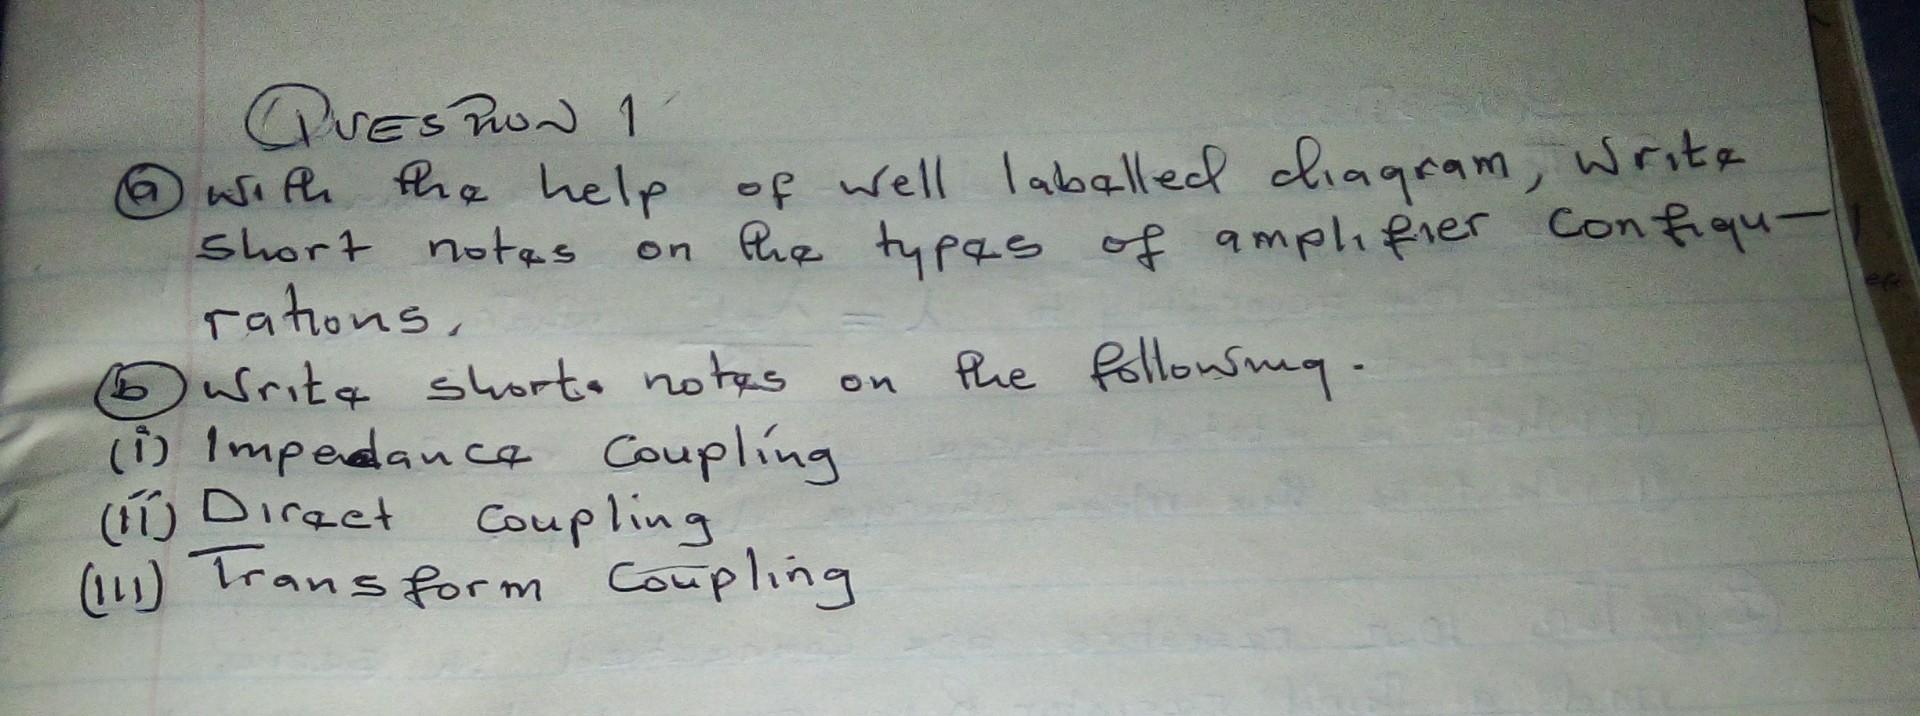 QUESTION 1
(a) with the help of well labelled diagram, write
short notes on the types of amplifier configu-
rations.
(b) write short notes on the following.
(i) Impedance Coupling
(ii) Direct coupling
(iii) Transform Coupling